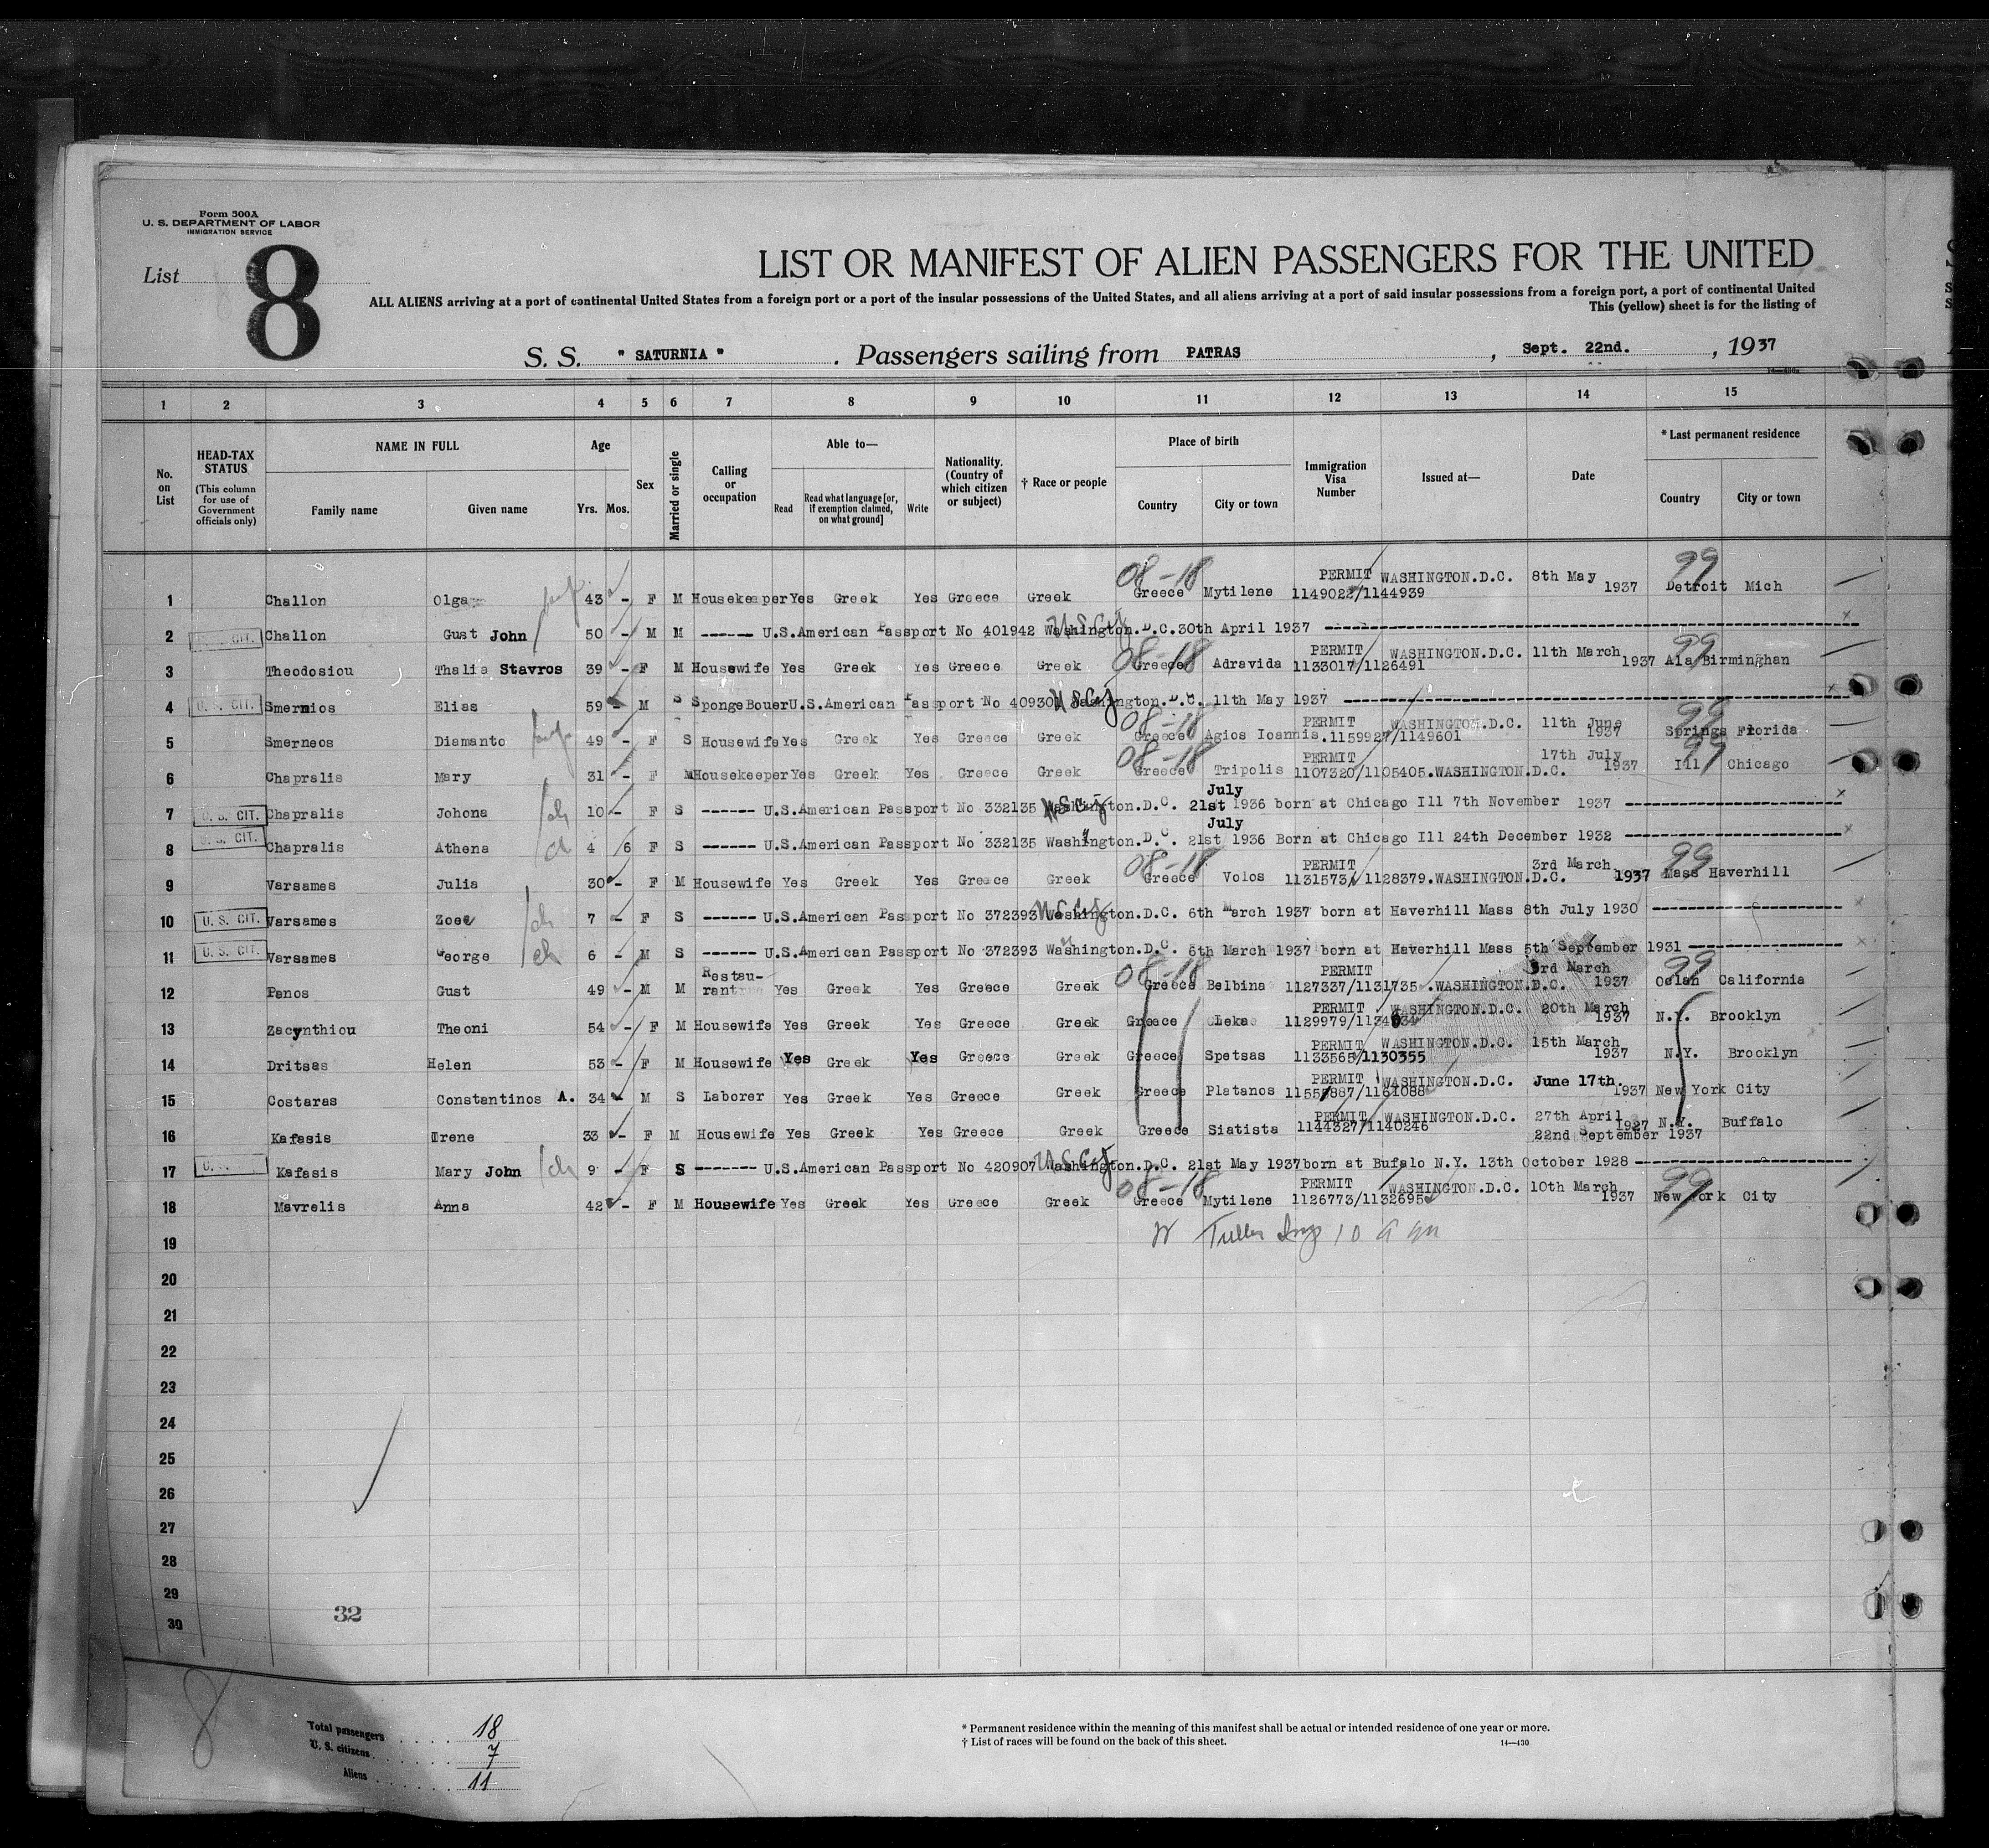 Form 500A
U. S. DEPARTMENT OF LABOR
IMMIGRATION SERVICE
List 8
LIST OR MANIFEST OF ALIEN PASSENGERS FOR THE UNITED
ALL ALIENS arriving at a port of continental United States from a foreign port or a port of the insular possessions of the United States, and all aliens arriving at a port of said insular possessions from a foreign port, a port of continental United
This (yellow) sheet is for the listing of
S. S. " SATURNIA " . Passengers sailing from PATRAS , Sept. 22nd. , 1937
1 2 3 4 5 6 7 8 9 10 11 12 13 14 15
No. on List
HEAD-TAX STATUS
(This column for use of Government officials only)
NAME IN FULL
Family name Given name
Age
Yrs. Mos.
Sex
Married or single
Calling or occupation
Able to—
Read Read what language [or, if exemption claimed, on what ground] Write
Nationality. (Country of which citizen or subject)
† Race or people
Place of birth
Country City or town
Immigration Visa Number
Issued at—
Date
* Last permanent residence
Country City or town
1 Challon Olga 43 - F M Housekeeper Yes Greek Yes Greece Greek 08-18 Greece Mytilene PERMIT 1149022/1144939 WASHINGTON.D.C. 8th May 1937 99 Detroit Mich
2 Challon Gust John 50 - M M ------ U.S.American Passport No 401942 Washington.D.C.30th April 1937
3 Theodosiou Thalia Stavros 39 - F M Housewife Yes Greek Yes Greece Greek 08-18 Greece Adravida PERMIT 1133017/1126491 WASHINGTON.D.C. 11th March 1937 99 Ala Birminghan
4 U. S. CIT. Smernios Elias 59 - M S SpongeBouer U.S.American Passport No 40930 Washington.D.C. 11th May 1937
5 Smerneos Diamanto 49 - F S Housewife Yes Greek Yes Greece Greek 08-18 Greece Agios Ioannis. PERMIT 1159927/1149601 WASHINGTON.D.C. 11th June 1937 99 Springs Florida
6 Chapralis Mary 31 - F M Housekeeper Yes Greek Yes Greece Greek 08-18 Greece Tripolis PERMIT 1107320/1105405.WASHINGTON.D.C. 17th July 1937 99 Ill Chicago
7 U. S. CIT. Chapralis Johona ch 10 - F S ------ U.S.American Passport No 332135 Washington.D.C. July 21st 1936 born at Chicago Ill 7th November 1937
8 U. S. CIT. Chapralis Athena 4 6 F S ------ U.S.American Passport No 332135 Washington.D.C. July 21st 1936 Born at Chicago Ill 24th December 1932
9 Varsames Julia 30 - F M Housewife Yes Greek Yes Greece Greek 08-18 Greece Volos PERMIT 1131573/ 1128379.WASHINGTON.D.C. 3rd March 1937 99 Mass Haverhill
10 U. S. CIT. Varsames Zoee ch 7 - F S ------ U.S.American Passport No 372393 Washington.D.C. 6th March 1937 born at Haverhill Mass 8th July 1930
11 U. S. CIT. Varsames George ch 6 - M S ------ U.S.American Passport No 372393 Washington.D.C. 6th March 1937 born at Haverhill Mass 5th September 1931
12 Panos Gust 49 - M M Restau-rant Yes Greek Yes Greece Greek 08-18 Greece Belbina PERMIT 1127337/1131735 .WASHINGTON.D.C. 3rd March 1937 99 California
13 Zacynthiou Theoni 54 - F M Housewife Yes Greek Yes Greece Greek Greece PERMIT 1129979/ WASHINGTON.D.C. 20th March 1937 N.Y. Brooklyn
14 Dritsas Helen 53 - F M Housewife Yes Greek Yes Greece Greek Greece Spetsas PERMIT 1133565/1130355 WASHINGTON.D.C. 15th March 1937 N.Y. Brooklyn
15 Costaras Constantinos A. 34 - M S Laborer Yes Greek Yes Greece Greek Greece Platanos PERMIT /1161088 WASHINGTON.D.C. June 17th. 1937 New York City
16 Kafasis Irene 33 - F M Housewife Yes Greek Yes Greece Greek Greece Siatista PERMIT 1144327/1140246 WASHINGTON.D.C. 27th April 1937 22nd September 1937 N.Y. Buffalo
17 Kafasis Mary John ch 9 - F S ------- U.S.American Passport No 420907 Washington.D.C. 21st May 1937born at Bufalo N.Y. 13th October 1928
18 Mavrelis Anna 42 - F M Housewife Yes Greek Yes Greece Greek 08-18 Greece Mytilene PERMIT 1126773/1132695 WASHINGTON.D.C. 10th March 1937 99 New York City
19
20
21
22
23
24
25
26
27
28
29
30
32
8
Total passengers 18
U. S. citizens 7
Aliens 11
* Permanent residence within the meaning of this manifest shall be actual or intended residence of one year or more.
† List of races will be found on the back of this sheet.
14—430